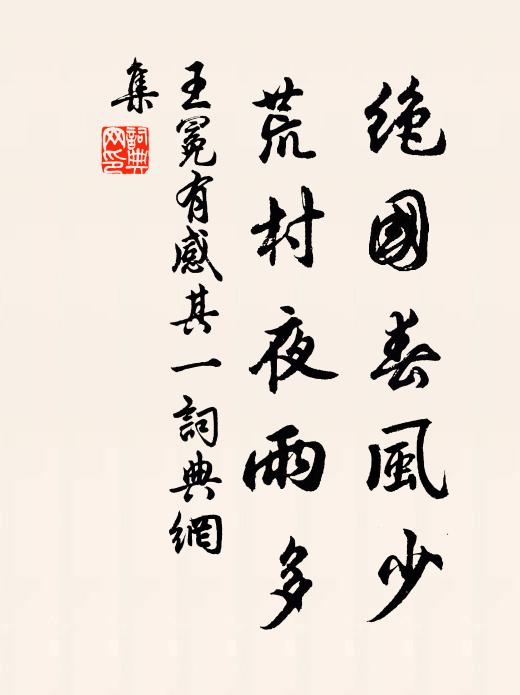 絶國春風少
荒村夜雨多
王冕有感其一詞典網
集
詞典
网印